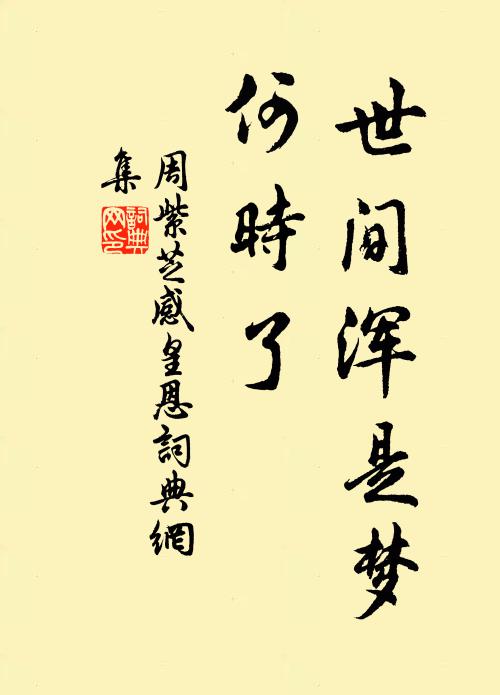 世间浑是梦
何時了
周紫芝感皇恩詞典網
集
詞典
网印